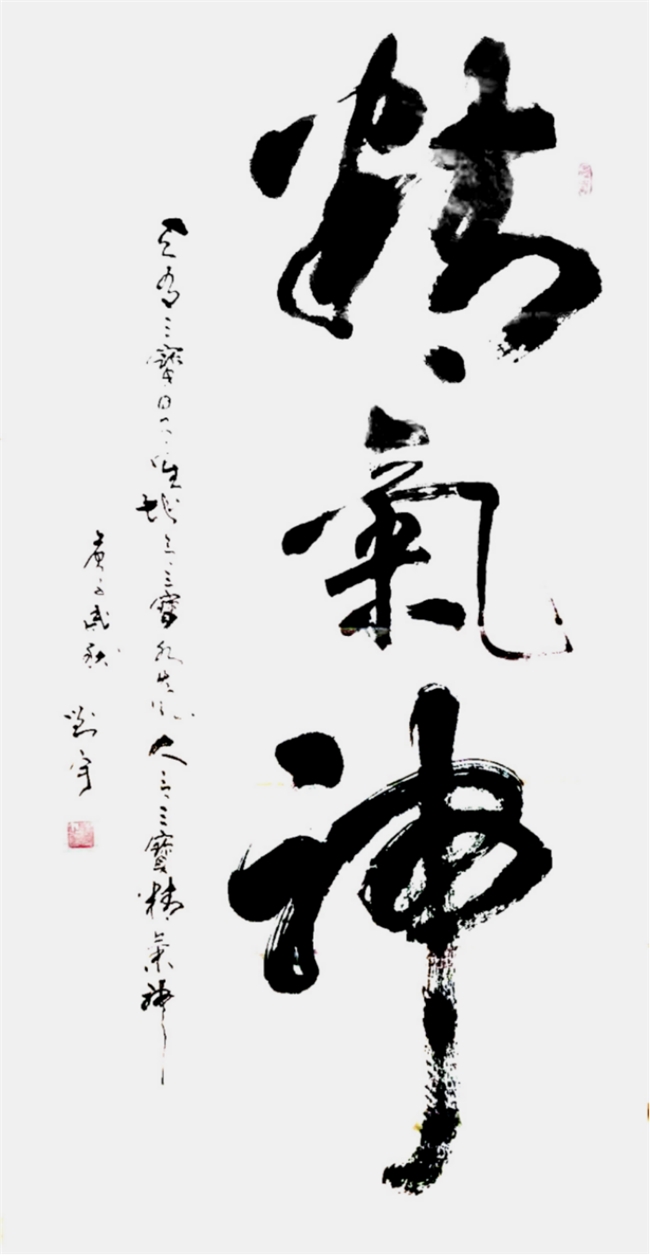 精氣神
天有三寶日月星地有三寶水火風人有三寶精氣神
庚子盛秋
劉宇